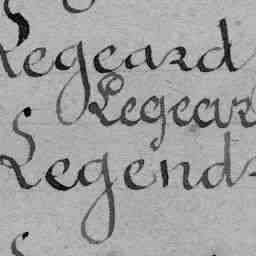 Legeard
Legear
Legend